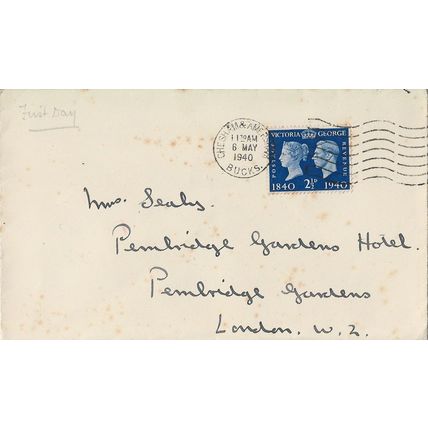 First Day
CHESHAM & AMER
11 30AM
6 MAY
1940
BUCKS.
VICTORIA GEORGE
POSTAGE REVENUE
1840 2½D 1940
Mrs. Sealy.
Pembridge Gardens Hotel.
Pembridge Gardens
London. W. 2.